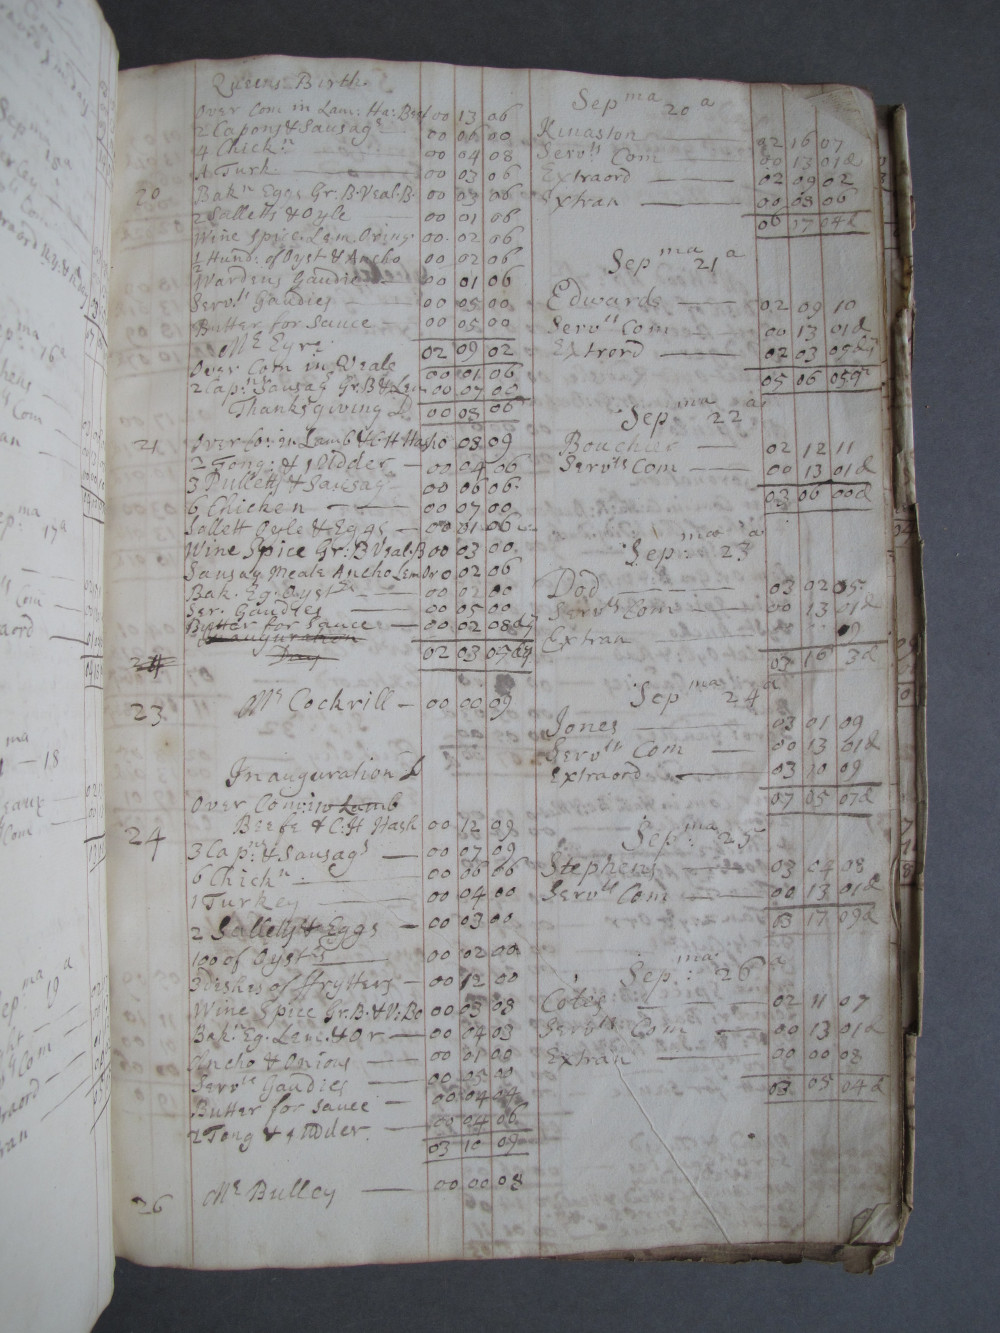 Queens Birth.
Over Com in Lam: Ha: Beef 00 13 06
2 Capons & Sausag 00 06 00
4 Chick:n 00 04 08
A Turk. 00 03 06
20 Bak:n Eggs Gr. B. Veal. B. 00 03 06
2 Salletts & Oyle 00 01 06
Wine Spice. Lem Oring. 00 02 06
1/2 Hund: of Oyst & Ancho 00 02 06
Wardens Gaudies 00 01 06
Serv:ts Gaudies 00 05 00
Butter for Sauce 00 05 00
02 09 02
Mr Eyre
Over Com in Veale 00 01 06
2 Cap:ns Sausag Gr. B & Lem 00 07 00
00 08 06
Thanksgiving D
21 Over Com: in Lamb & C. H Hash 0 08 09
2 Tong: & 1 Udder 00 04 06
3 Pulletts & Sausag 00 06 06
6 Chicken 00 07 00
Sallett Oyle & Eggs 00 01 06
Wine Spice Gr: B Veal. B 00 03 00
Sausag Meale Ancho Lem Or 0 02 06
Bak. Eg: Oyst 00 02 00
Ser. Gaudies 00 05 00
Butter for Sauce 00 02 08 dq
02 03 05 dq
Inauguration
24 Day
23 Mr Cockrill 00 00 09
Inauguration D
Over Com: in Lamb
24 Beefe & C: H Hash 00 12 09
3 Cap:ns & Sausags 00 07 09
6 Chick:n 00 06 06
1 Turkey 00 04 00
2 Salletts & Eggs 00 03 00
100 of Oysts 00 02 00
3 Dishes of Frytters 00 12 00
Wine Spice Gr. B. & V: Bo 00 03 08
Bak:n Eg. Lem: & Or 00 04 03
Ancho & Onions 00 01 00
Serv:ts Gaudies 00 05 00
Butter for Sauce 00 04 04
2 Tong & 1 Udder. 00 04 06
03 10 09
26 Mr Bulley 00 00 08
Sep:ma 20a
Kinaston 02 16 07
Serv:ts Com 00 13 01d
Extraord 02 09 02
Extran 00 08 06
06 07 04d
Sep:ma 21a
Edwards 02 09 10
Serv:ts Com 00 13 01d
Extrord 02 03 05dq
05 06 05q
Sep:ma 22a
Bouchier 02 12 11
Serv:ts Com 00 13 01d
03 06 00d
Sep:ma 23a
Dod 03 02 05
Serv:ts Com 00 13 01d
Extran 9
03 16 3d
Sep:ma 24a
Jones 03 01 09
Serv:ts Com 00 13 01d
Extraord 03 10 09
07 05 07d
Sep:ma 25
Stephens 03 04 08
Serv:ts Com 00 13 01d
03 17 09d
Sep:ma 26a
Coles 02 11 07
Serv:ts Com 00 13 01d
Extran 00 00 08
03 05 04d